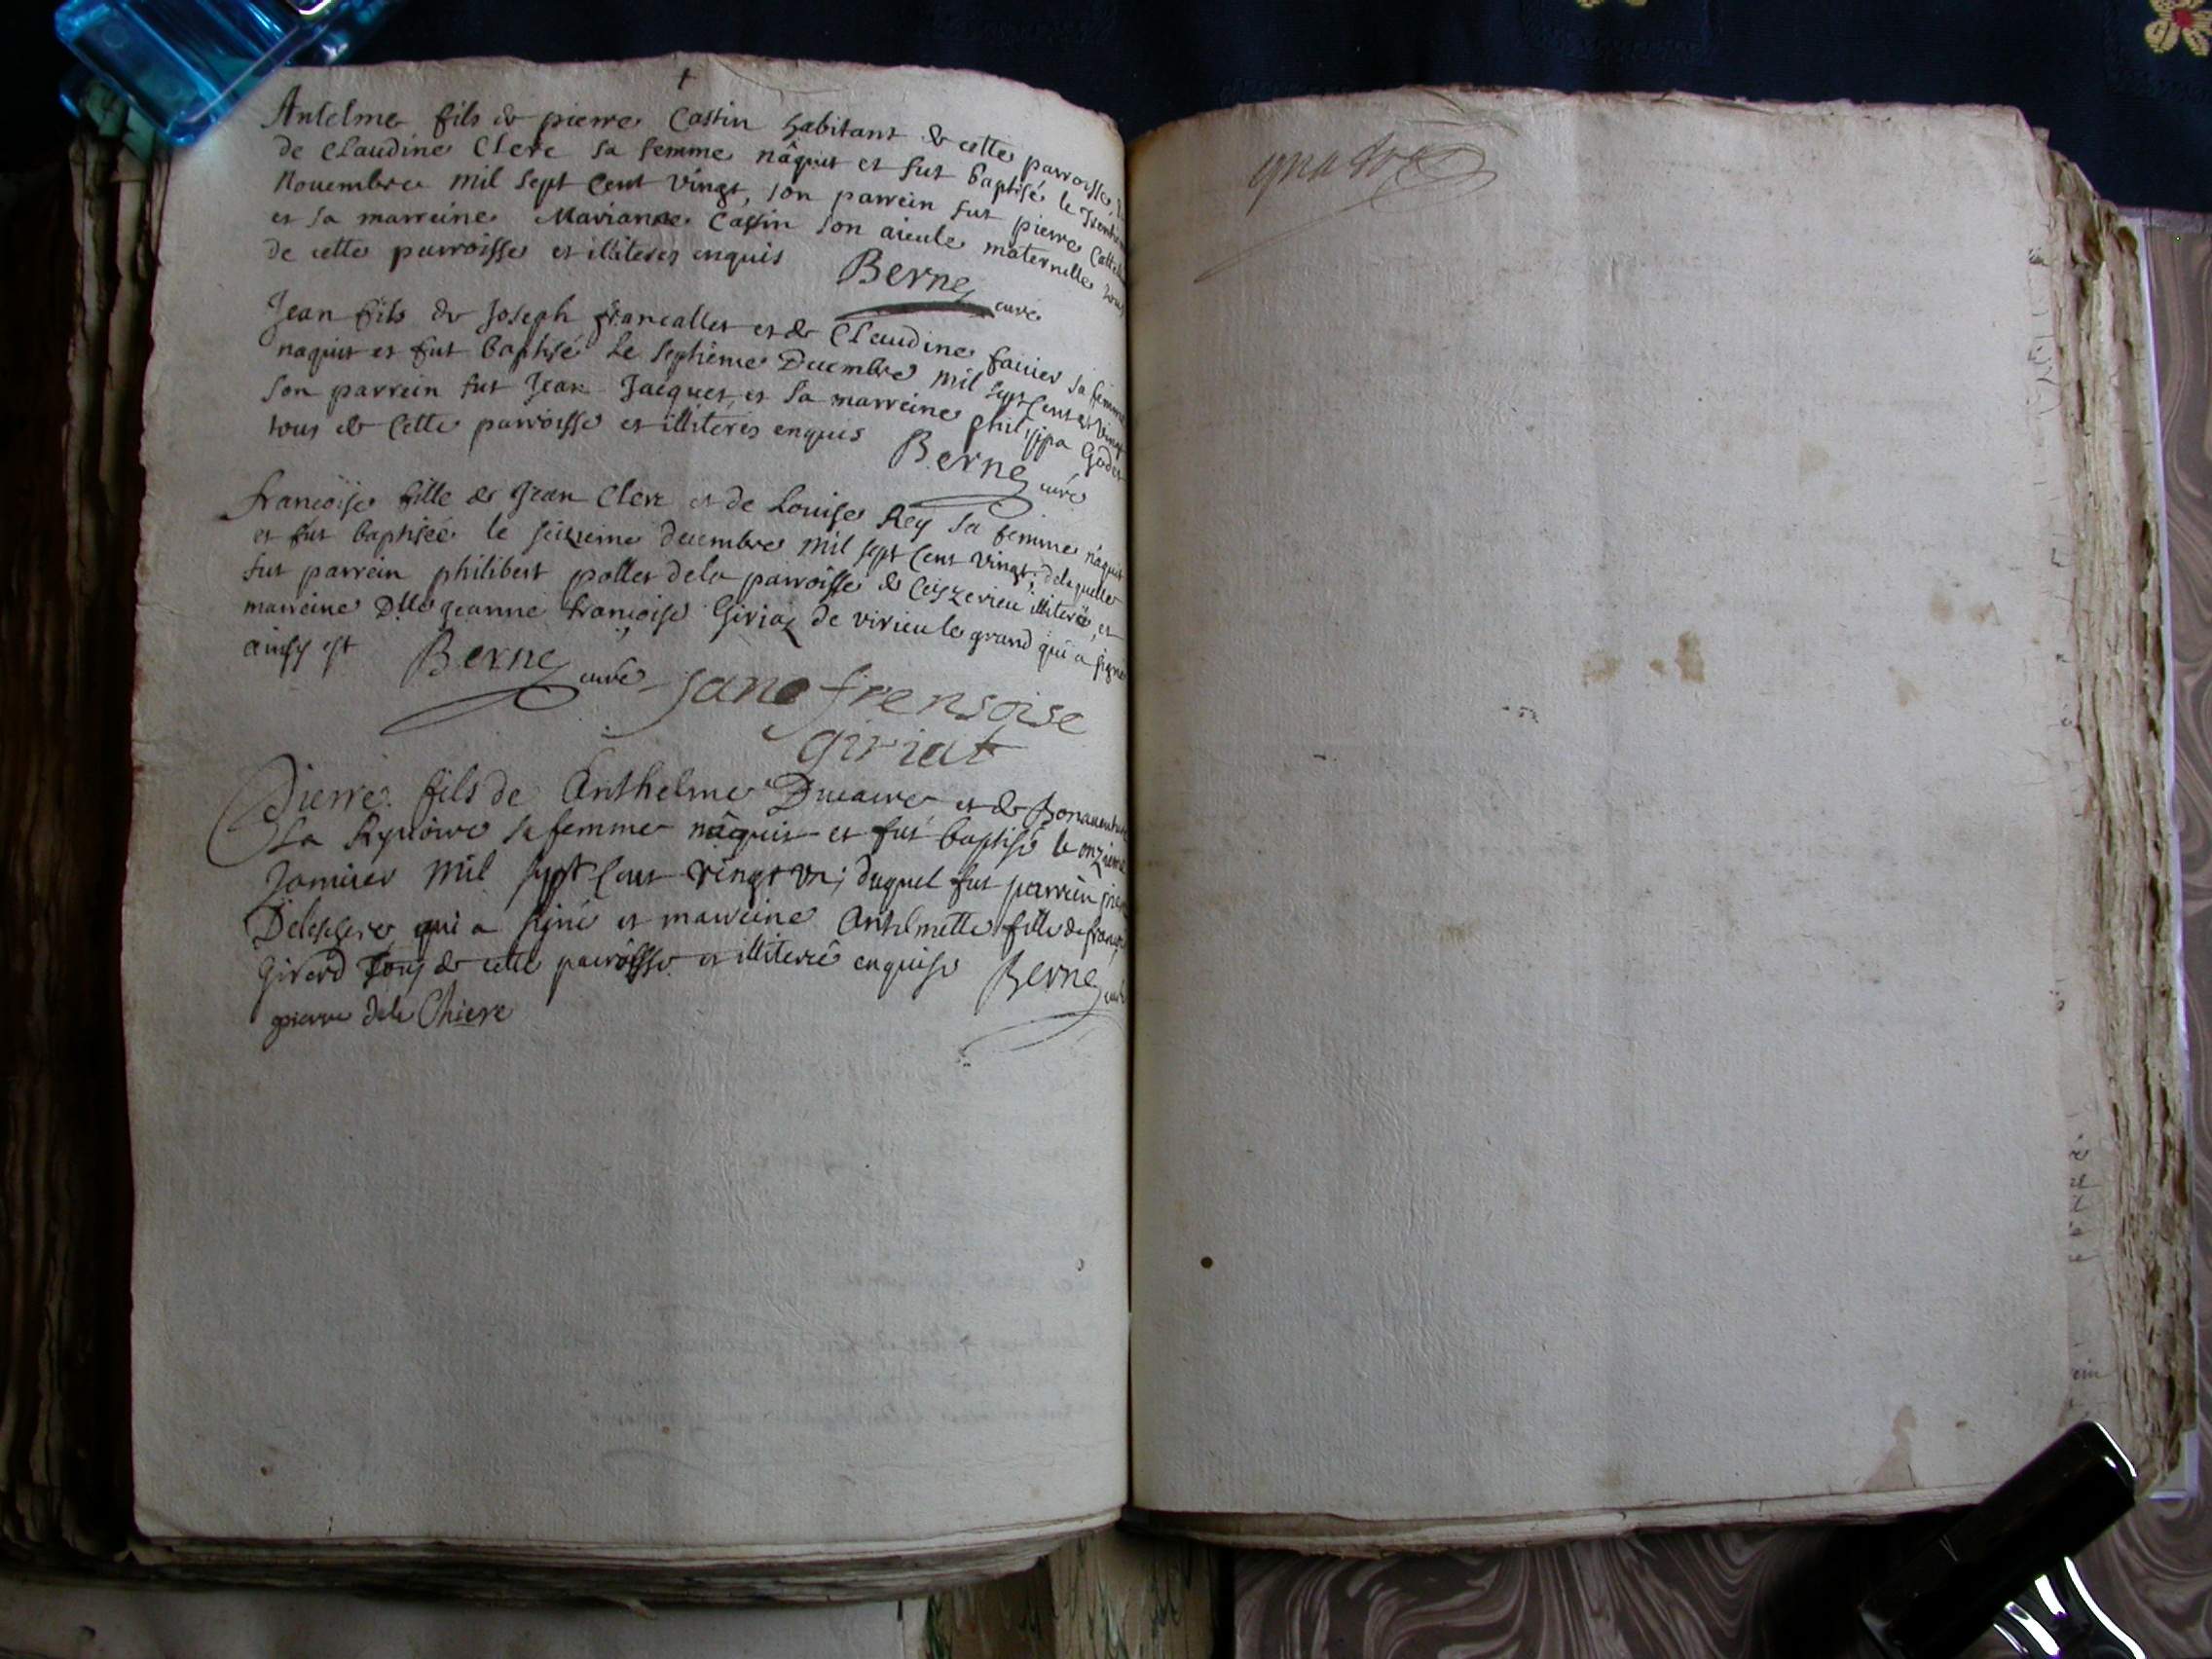 Antelme fils de pierre Castin habitant de cette parroisse,
de Claudine Clerc sa femme nâquit et fut baptisé le
Nouembre mil sept cent vingt, son parrein fut pierre
et sa marreine Marianne Castin son aieule maternelle tous
de cette parroisse et illiterez enquis Berne curé
Jean fils de Joseph francallet et de Claudine fauier sa femme
naquit et fut baptisé le septiéme Decembre mil sept cent vingt
son parrein fut Jean Jacquet, et sa marreine philippa Godet
tous de cette parroisse et illiterés enquis Berne curé
francoise fille de Jean Clerc et de Louise Rey sa femme nâquit
et fut baptisée le seizieme decembre mil sept cent vingt; de laquelle
fut parrein philibert pollet de la parroisse de Ceyzerieu illiteré, et
marreine Dlle Jeanne françoise Giriaz de virieu le grand qui a signé
ainsy est Berne curé jane frensoise
giriat
Pierre fils de Anthelme Ducaire et de Bonauenture
La sa femme nâquit et fut baptisé le onzieme
Januier mil sept cent vingt vn; duquel fut parrein
qui a signé et marreine Antelmette fille de françois
Girerd tous de cette parroisse et illiteré enquise Berne curé
pierre dela Chiere